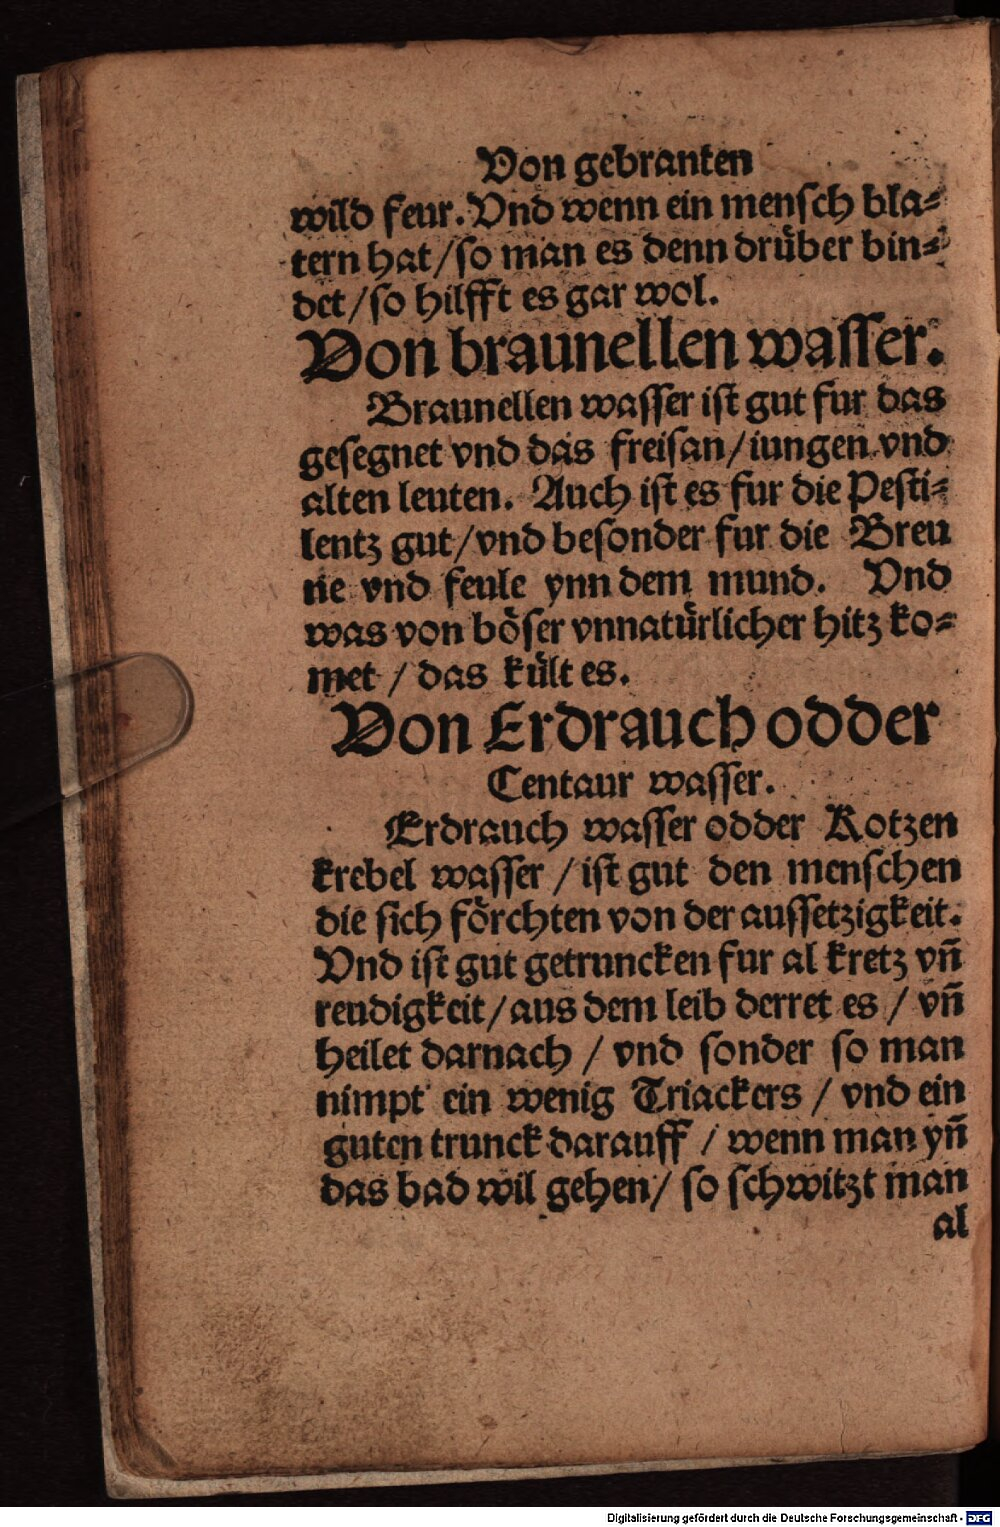 Von gebranten
wild feur. Vnd wenn ein mensch bla-
tern hat / so man es denn drüber bin-
det / so hilfft es gar wol.
Von braunellen wasser.
Braunellen wasser ist gut fur das
gesegnet vnd das freisan / iungen vnd
alten leuten. Auch ist es fur die Pesti-
lentz gut / vnd besonder fur die Breu
ne vnd feule ynn dem mund. Vnd
was von böser vnnatürlicher hitz ko-
met / das kült es.
Von Erdrauch odder
Centaur wasser.
Erdrauch wasser odder Kotzen
krebel wasser / ist gut den menschen
die sich förchten von der aussetzigkeit.
Vnd ist gut getruncken fur al kretz vñ
reudigkeit / aus dem leib derret es / vñ
heilet darnach / vnd sonder so man
nimpt ein wenig Triackers / vnd ein
guten trunck darauff / wenn man yñ
das bad wil gehen / so schwitzt man
al
Digitalisierung gefördert durch die Deutsche Forschungsgemeinschaft - DFG